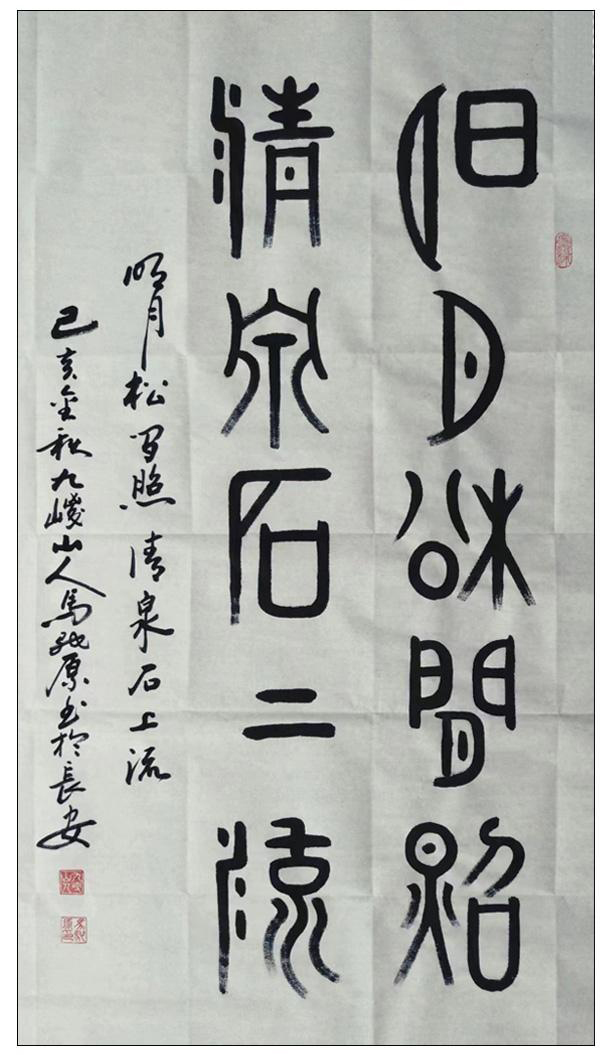 明月松間照
清泉石上流
明月松间照清泉石上流
己亥金秋九嵕山人馬原书於長安